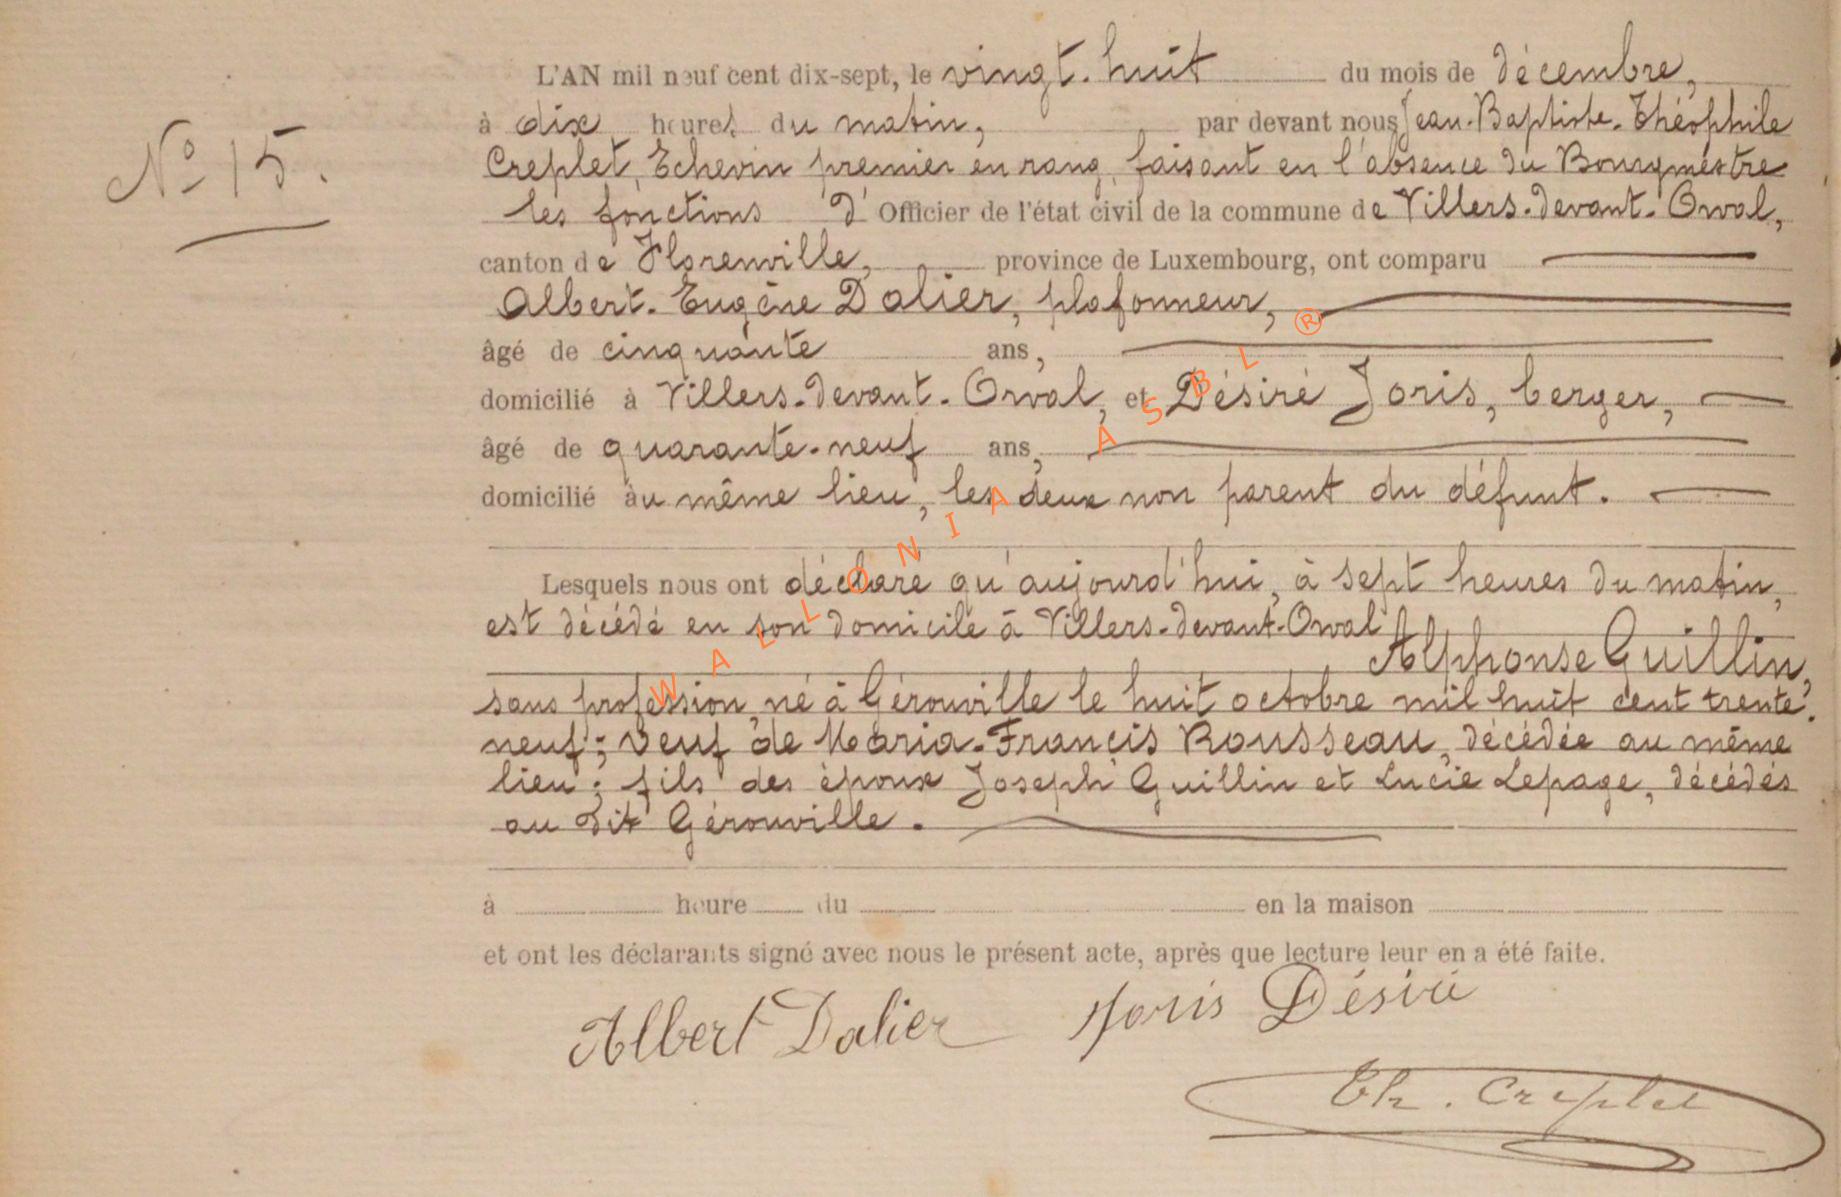 N° 15.
L'AN mil neuf cent dix-sept, le vingt-huit du mois de décembre,
à dix heures du matin, par devant nous Jean-Baptiste-Théophile
Creplet, Echevin premier en rang, faisant en l'absence du Bourgmestre
les fonctions d'Officier de l'état civil de la commune de Villers-devant-Orval,
canton de Florenville, province de Luxembourg, ont comparu
Albert-Eugène Dalier, plafonneur,
âgé de cinquante ans,
domicilié à Villers-devant-Orval, et Désiré Joris, berger,
âgé de quarante-neuf ans,
domicilié au même lieu, les deux non parent du défunt.
Lesquels nous ont déclaré qu'aujourd'hui, à sept heures du matin,
est décédé en son domicile à Villers-devant-Orval
Alphonse Guillin,
sans profession, né à Gérouville le huit octobre mil huit cent trente-
neuf; veuf de Maria-Francis Rousseau, décédée au même
lieu; fils des époux Joseph Guillin et Lucie Lepage, décédés
au dit Gérouville.
à heure du en la maison
et ont les déclarants signé avec nous le présent acte, après que lecture leur en a été faite.
Albert Dalier Joris Désiré
Th. Creplet
WALLONIA ASBL ®